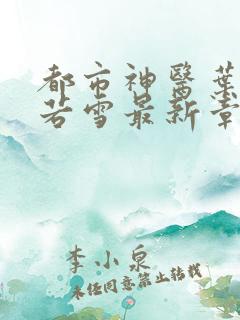 都市神醫葉
若雪最新章
李小泉
未经同意禁止转载